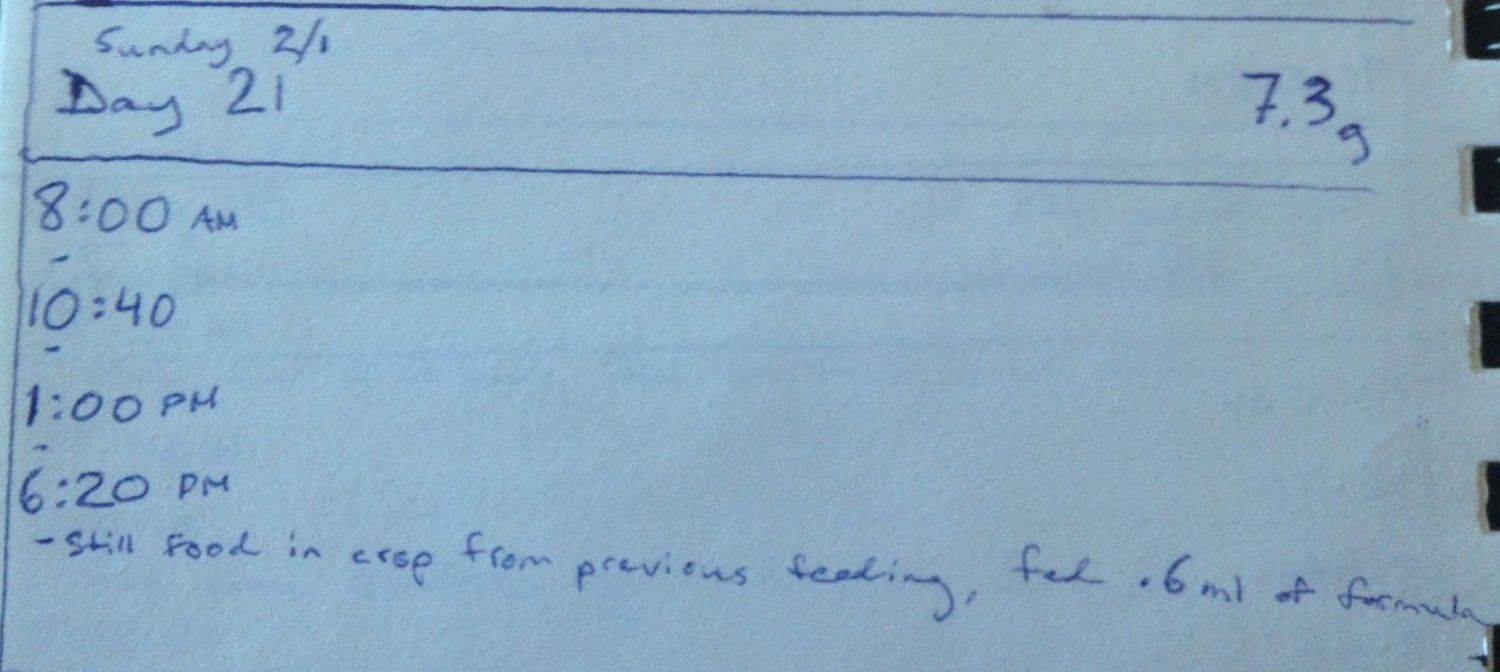 Sunday 2/1
Day 21 7.3g
8:00 AM
-
10:40
-
1:00 PM
-
6:20 PM
- Still food in crop from previous feeding, fed .6 ml of formula